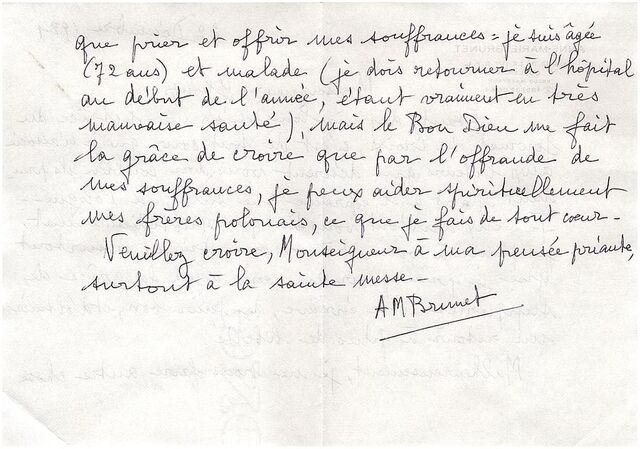 que prier et offrir mes souffrances = je suis âgée
(72 ans) et malade (je dois retourner à l'hôpital
au début de l'année, étant vraiment en très
mauvaise santé), mais le Bon Dieu me fait
la grâce de croire que par l'offrande de
mes souffrances, je peux aider spirituellement
mes frères polonais, ce que je fais de tout coeur -
Veuillez croire, Monseigneur à ma pensée priante,
surtout à la sainte messe -
AMBrunet